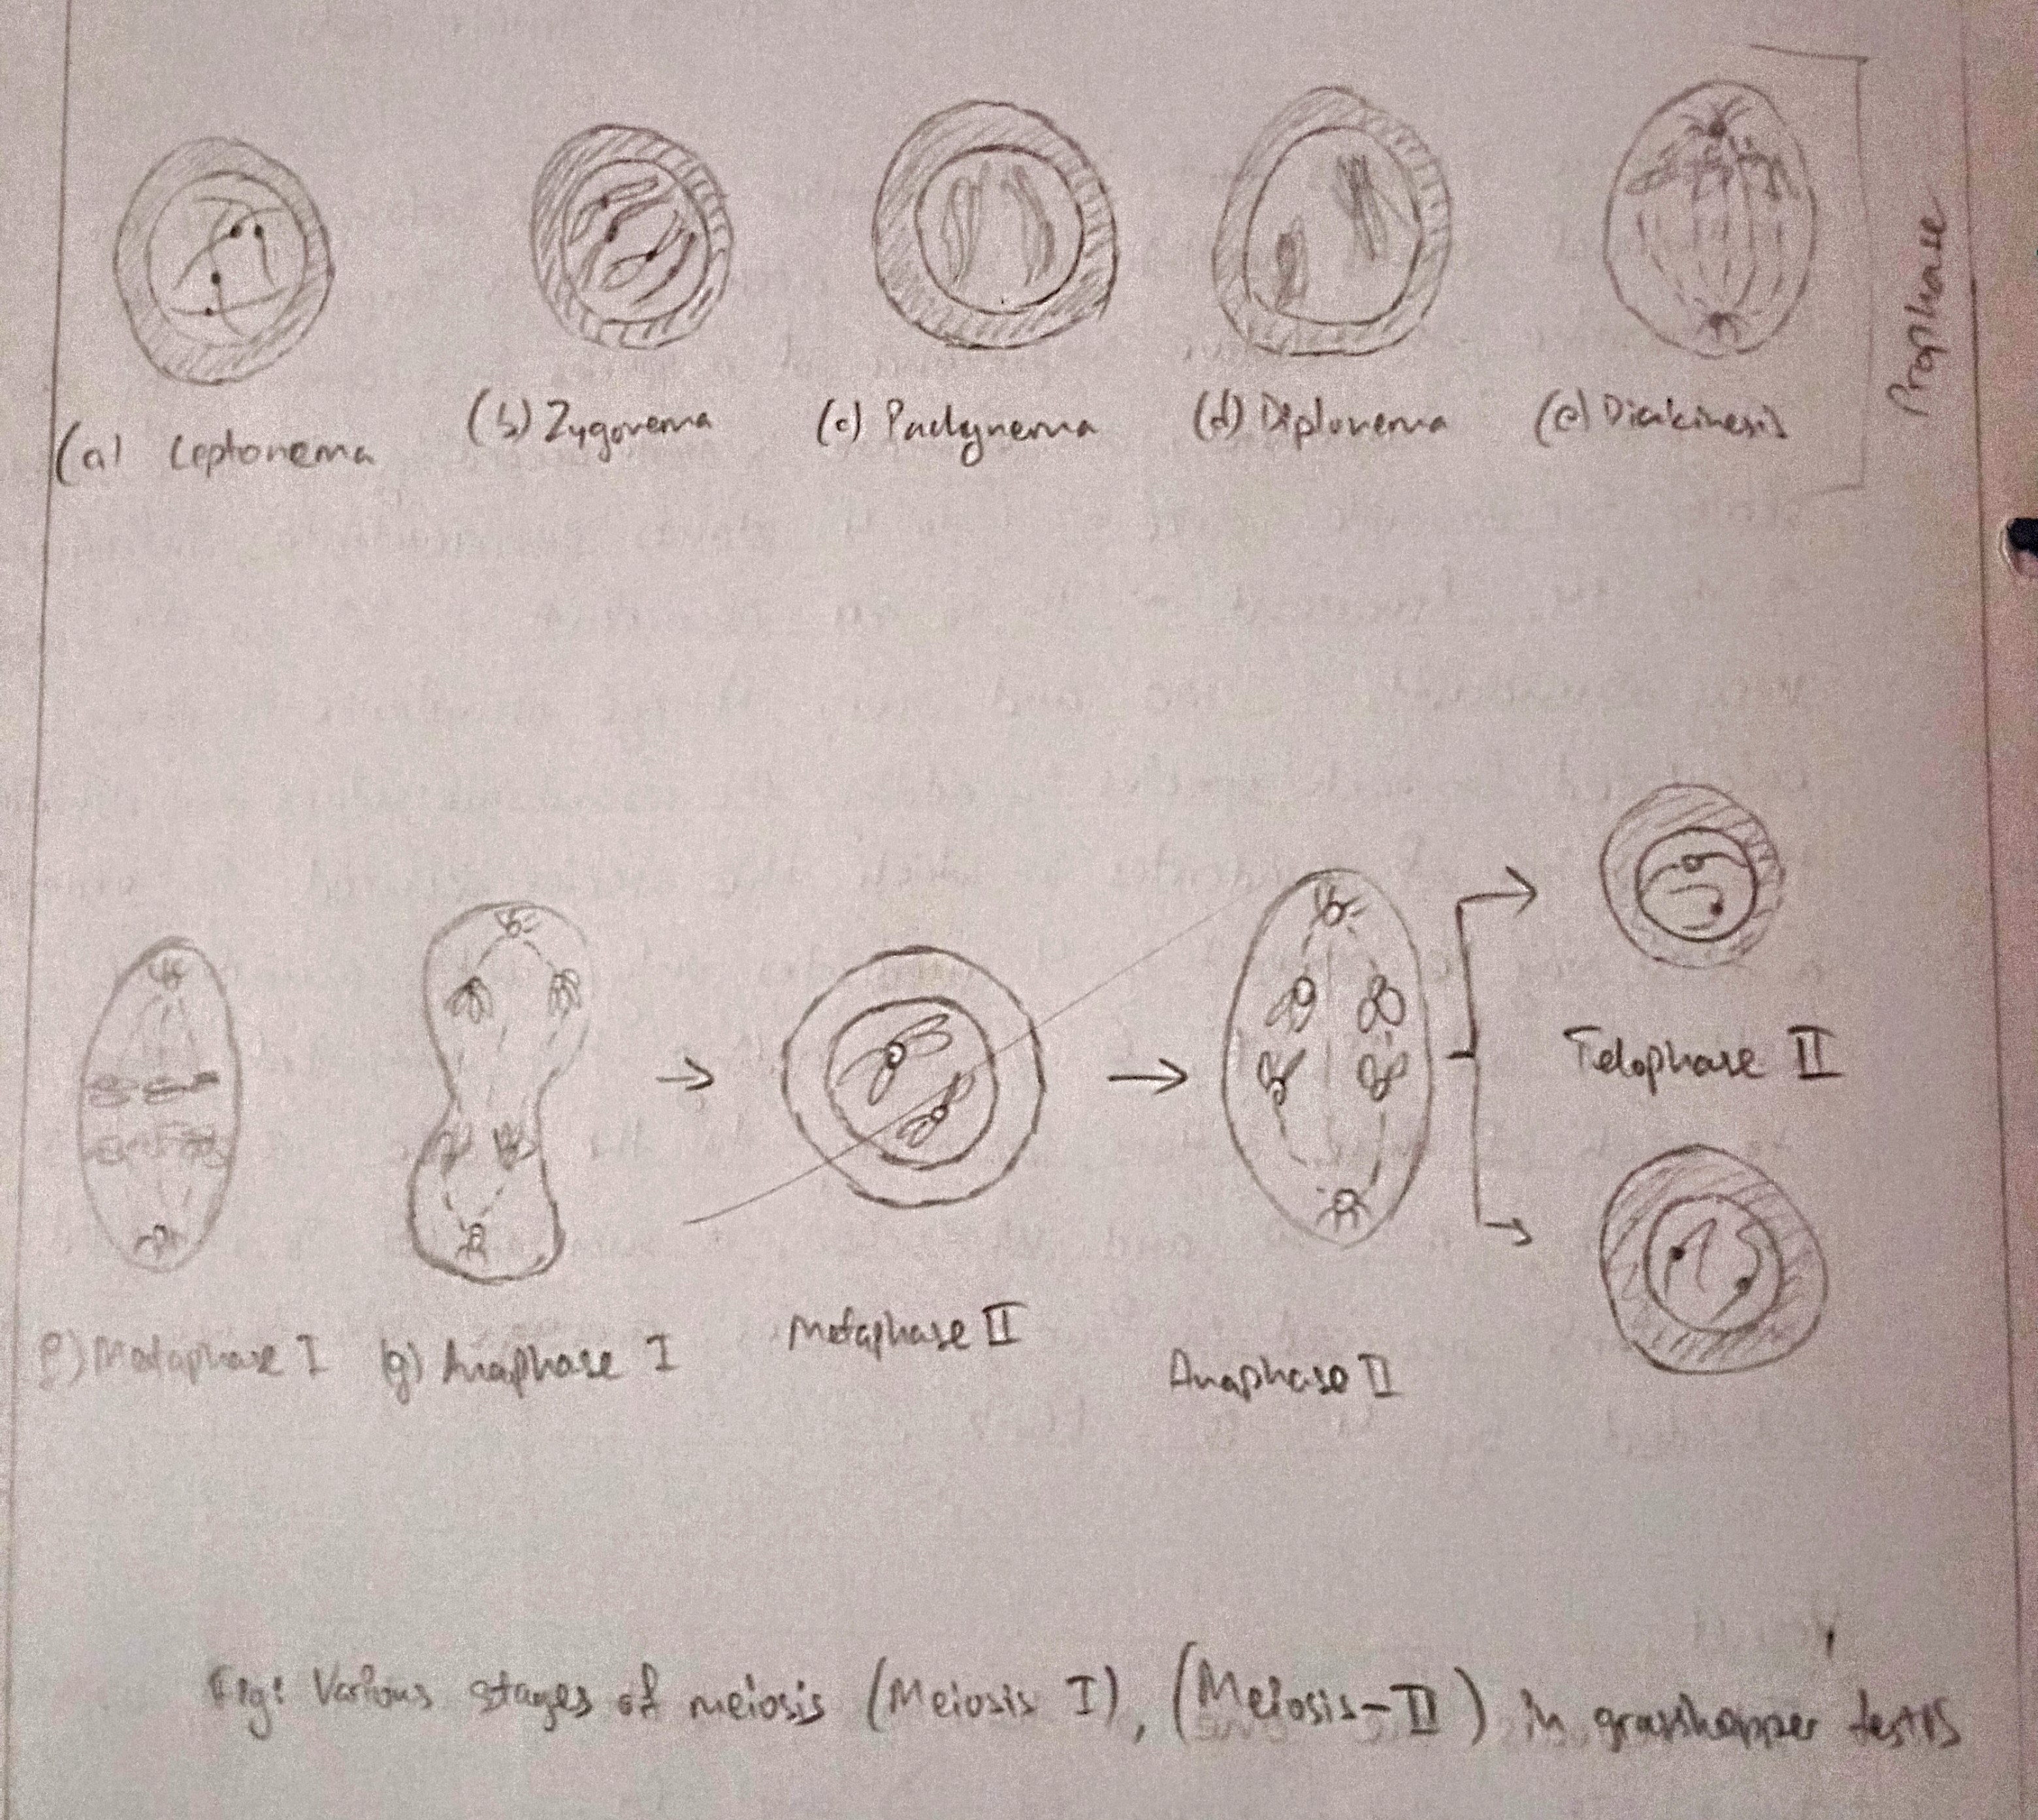 (a) Leptonema
(b) Zygonema
(c) Pachynema
(d) Diplonema
(e) Diakinesis
Prophase
f) Metaphase I
(g) Anaphase I
Metaphase II
Anaphase II
Telophase II
Fig: Various stages of meiosis (Meiosis I), (Meiosis-II) in grasshopper testis